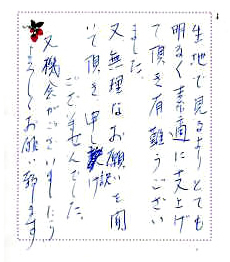 生地で見るよりとても
明るく素適に支上げ
て頂き有難うござい
ました。
又無理なお願いを聞
いて頂き申し訳
ございませんでした。
又機会がございましたら
よろしくお願い致します